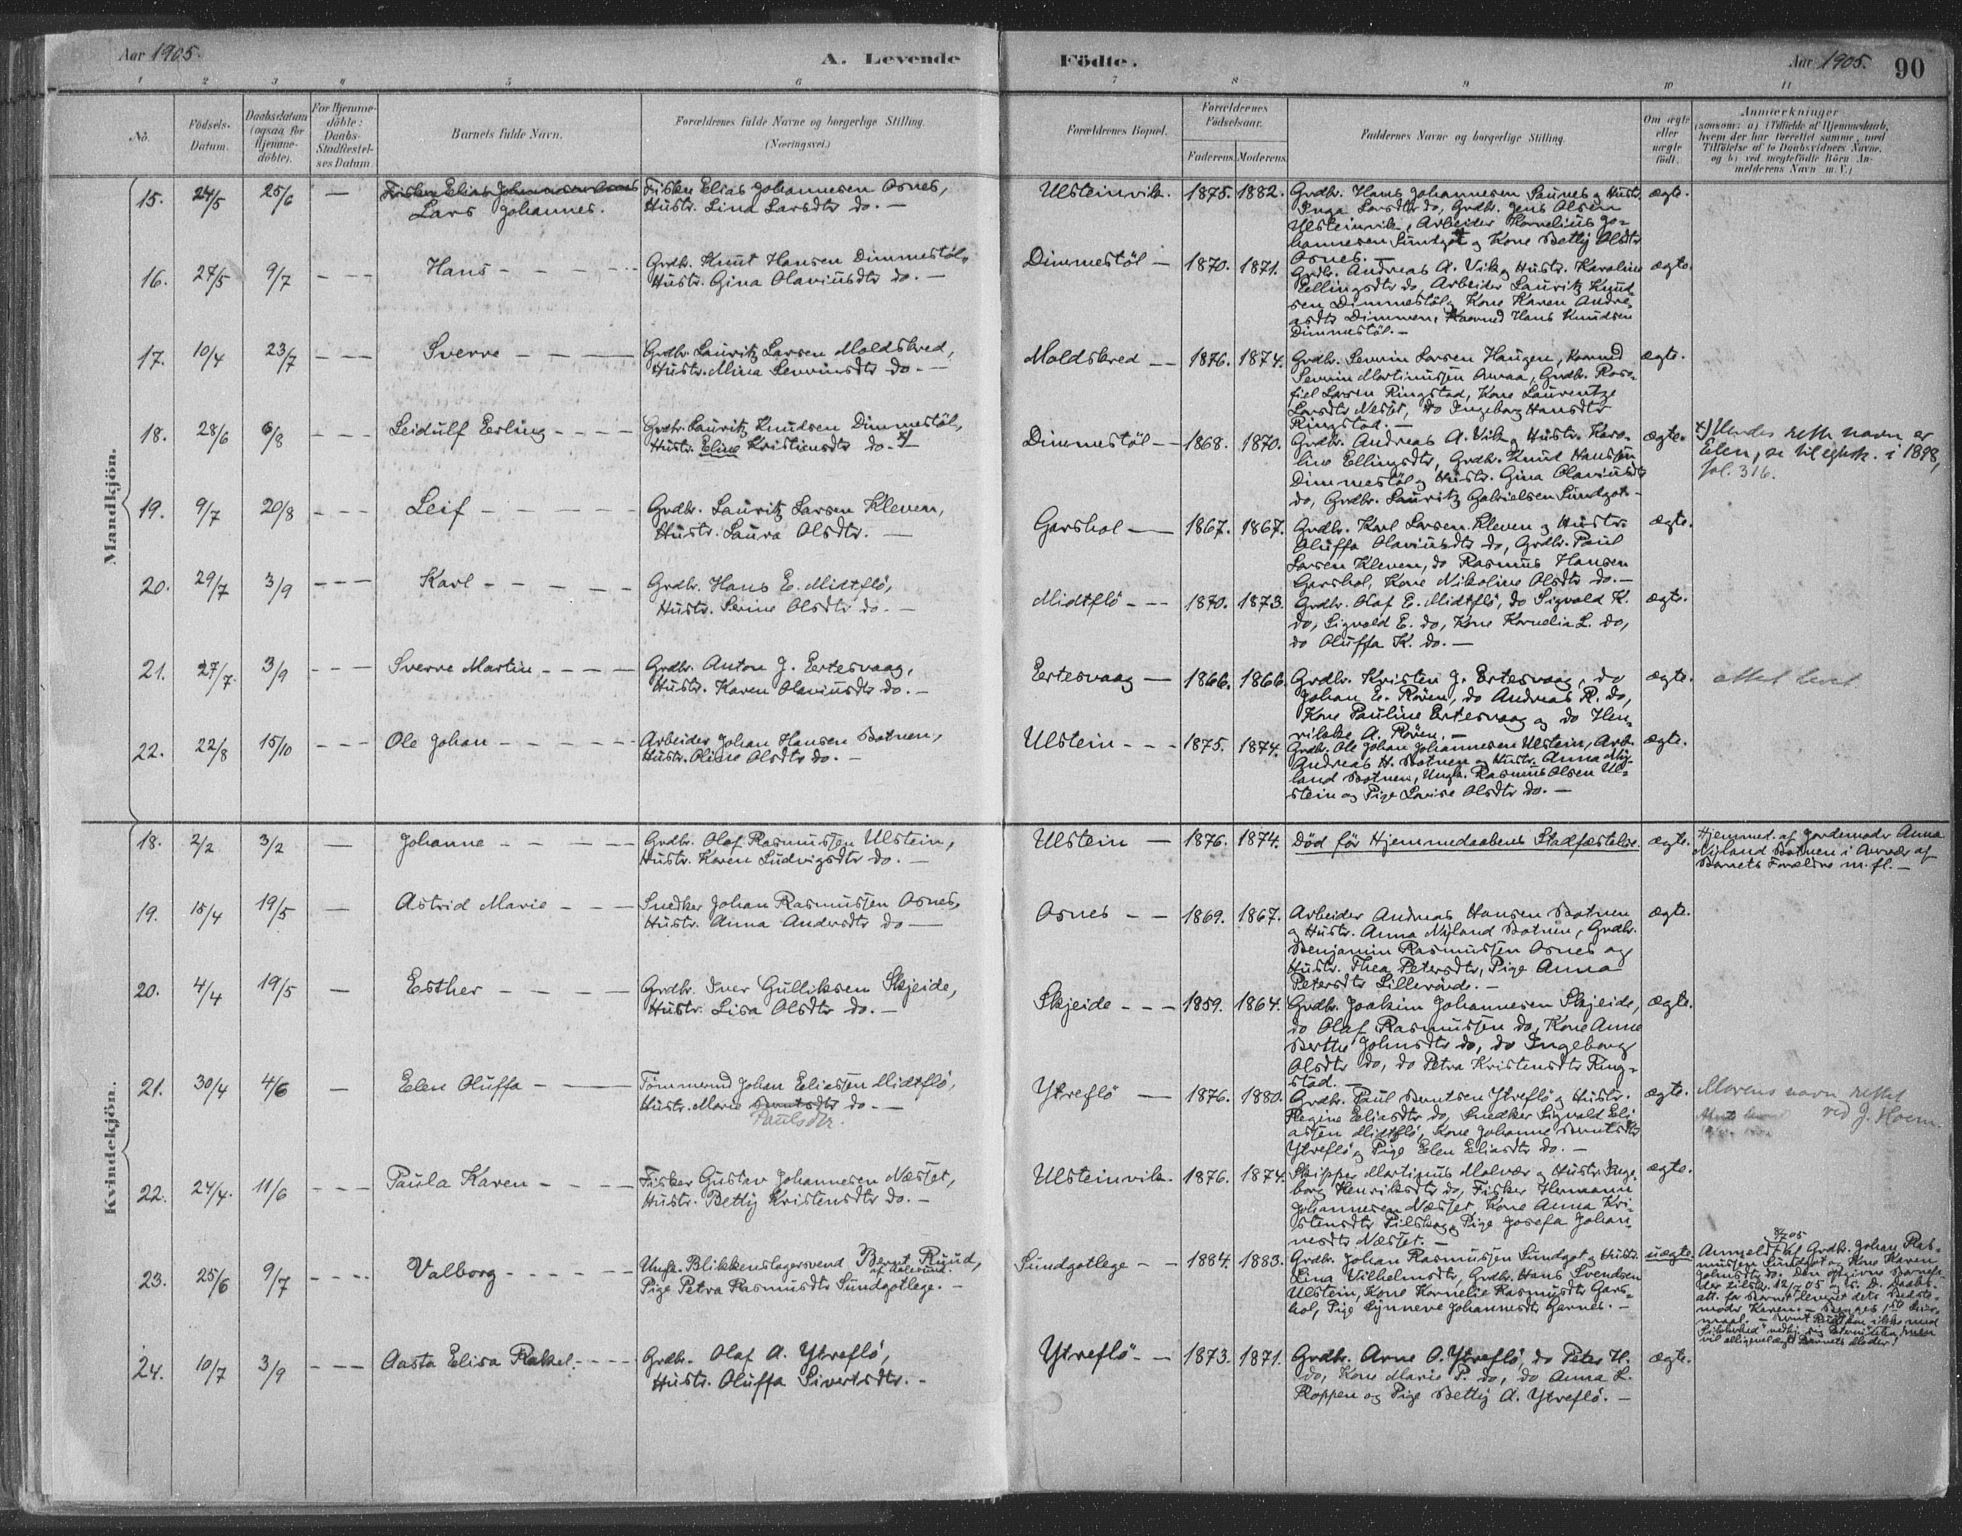 Aar 1905.
A. Levende
Födte.
Aar 1905.
90
1 2 3 4 5 6 7 8 9 10 11
No.
Födsels-Datum.
Daabsdatum (ogsaa for Hjemme-döbte).
For Hjemme-döbte: Daabs-Stadfæstel-ses Datum
Barnets fulde Navn.
Forældrenes fulde Navne og borgerlige Stilling.
(Næringsvei.)
Forældrenes Bopæl.
Forældrenes Födselsaar.
Faderens. Moderens.
Faddernes Navne og borgerlige Stilling.
Om ægte eller uægte födt.
Anmærkninger
(saasom: a) i Tilfælde af Hjemmedaab, hvem der har forrettet samme, med Tilföielse af to Daabsvidners Navne, og b) ved uægtefödte Börn An-melderens Navn m. V.)
Mandkjön.
15. 24/5 25/6 — Fisker Elias Johannesen Osnes
Lars Johannes.
Fisker Elias Johannesen Osnes,
Hustr. Lina Larsdtr do. —
Ulsteinvik. 1875. 1882.
Grdbr. Hans Johannesen Saunes og Hustr.
Inga Larsdtr do, Grdbr. Jens Olsen
Ulsteinvik, Arbeider Kornelius Jo-
hannesen Sundgot og Kone Betty Olsdtr
Osnes. —
ægte.
16. 27/5 9/7 - - - Hans - - - -
Grdbr. Knut Hansen Dimmestöl,
Hustr. Gina Olaviusdtr do. —
Dimmestöl — 1870. 1871.
Grdbr. Andreas A. Vik og Hustr. Karoline
Ellingsdtr do, Arbeider Lauritz Knud-
sen Dimmestöl og Kone Karen Andre-
asdtr Dimmen, Hans Knudsen
Dimmestöl. —
ægte.
17. 10/4 23/7 - - - Sverre - - —
Grdbr. Lauritz Larsen Moldskred,
Hustr. Mina Severinsdtr do. —
Moldskred — 1876. 1874.
Grdbr. Severin Larsen Haugen,
Severin Martinussen Aaraa, Grdbr.
Larsen Ringstad, Kone Laurentze
Larsdtr Nesset, do Ingeborg Hansdtr
Ringstad. —
ægte.
18. 28/6 6/8 - - - Leidulf Erling - - - -
Grdbr. Lauritz Knudsen Dimmestöl,
Hustr. Eline Kristiansdtr do. x)
Dimmestöl — 1868. 1870.
Grdbr. Andreas A. Vik og Hustr. Karo-
line Ellingsdtr, Grdbr. Knud Hanssen
Dimmestöl og Hustr. Gina Olaviusdtr
do, Grdbr. Lauritz Gabrielsen Sundgot. -
ægte.
x) Hendes rette navn er
Elen, se til egtesk. i 1898,
fol. 316.
19. 9/7 20/8 - - - Leif - - - - -
Grdbr. Lauritz Larsen Kleven,
Hustr. Laura Olsdtr. —
Garshol — 1867. 1867.
Grdbr. Karl Larsen Kleven og Hustr.
Oluffa Olaviusdtr do, Grdbr. Paul
Larsen Kleven, do Rasmus Hansen
Garshol, Kone Nikoline Olsdtr do. —
ægte.
20. 29/7 3/9 - - - Karl - - - - -
Grdbr. Hans E. Midtflö,
Hustr. Serine Olsdtr do. —
Midtflö - - - 1870. 1873.
Grdbr. Olaf E. Midtflö, do Sigvald K.
do, Sigvald E. do, Kone Kornelia L. do,
do Oluffa K. do. —
ægte.
21. 27/7. 3/9 - - - Sverre Martin - - - -
Grdbr. Anton J. Eertesvaag,
Hustr. Karen Olaviusdtr do. —
Eertesvaag — 1866. 1866.
Grdbr. Kristen J. Eertesvaag, do
Johan E. Rören, do Andreas R. do,
Kone Pauline Ertesvaag og do Hen-
rikke A. Rören. —
ægte.
22. 22/8 15/10 - - - Ole Johan - - - - -
Arbeider Johan Hansen Botnen,
Hustr. Oline Olsdtr do. —
Ulstein - - - 1875. 1874.
Grdbr. Ole Johan Johannesen Ulstein, Arb.
Andreas H. Botnen og Hustr. Anna Ny-
land Botnen, Ungk. Rasmus Olsen Ul-
stein og Pige Lovise Olsdtr do. —
ægte.
Kvindekjön.
18. 2/2 3/2 — Johanne - - - -
Grdbr. Olaf Rasmussen Ulstein,
Hustr. Karen Ludvigsdtr do. —
Ulstein — 1876. 1874.
Död för Hjemmedaabens Stadfæstelse.
ægte.
Hjemmed. af Jordemoder Anna
Nyland Botnen i Nærvær af
Barnets Forældre m. fl. —
19. 15/4 19/5 — Astrid Marie - - -
Snedker Johan Rasmussen Osnes,
Hustr. Anna Andersdtr do —
Osnes — — 1869. 1867.
Arbeider Andreas Hansen Botnen
og Hustr. Anna Nyland Botnen, Grdbr.
Benjamin Rasmussen Osnes og
Hustr. Thea Petersdtr, Pige Anna
Petersdtr Lillerövde. —
ægte.
20. 4/4 19/5 — Esther - - - -
Grdbr. Iver Gulliksen Skjeide,
Hustr. Lisa Olsdtr do. —
Skjeide - - - 1859. 1864.
Grdbr. Joakim Johannesen Skjeide,
do Olaf Rasmussen do, Kone Anne
Berthe Johnsdtr do, do Ingeborg
Olsdtr do, do Petra Kristensdtr Ring-
stad. —
ægte.
21. 30/4 4/6 — Elen Oluffa - —
Tömmermd Johan Eliassen Midtflö,
Hustr. Marie Berntsdtr do. —
Paulsdtr.
Ytreflö — 1876. 1880.
Grdbr. Paul Berntsen Ytreflö og Hustr.
Regine Eliasdtr do, Snedker Sigvald Eli-
assen Midtflö, Kone Johanne Berntsdtr
Ytreflö og Pige Elen Eliasdtr do. —
ægte.
Morens navn rettet
ved J. Hoem.
22. 24/4. 11/6 - - - Paula Karen - - - -
Fisker Gustav Johannesen Næsset,
Hustr. Betty Kristensdtr do. —
Ulsteinvik. 1876. 1874.
Skipper Martinus Molvær og Hustr. Inge-
borg Henriksdtr do, Fisker Hermann
Johannesen Næsset, Kone Anna Kri-
stensdtr Pilskog, Pige Josefa Johan-
nesdtr Næsset. —
ægte.
23. 25/6 9/7 - - - Valborg - - - - -
Ungk. Blikkenslagersvend Bernt Ruud,
af Aalesund.
Pige Petra Rasmusdtr Sundgotlege. —
Sundgotlege — — 1884. 1883.
Grdbr. Johan Rasmussen Sundgot og Hustr.
Lina Vilhelmsdtr, Grdbr. Hans Svendsen
Ulstein, Kone Kornelie Rasmusdtr Gars-
hol, Pige Synneve Johannesdtr Garnes. —
uægte
Anmeldt af Grdbr. Johan Ras-
mussen Sundgot og Kone Karen
Johnsdtr do.
moder Karen. —
24. 10/7 3/9 Aasta Elisa Rakel. - - -
Grdbr. Olaf A. Ytreflö,
Hustr. Oluffa Sivertsdtr. —
Ytreflö — — 1873. 1871.
Grdbr. Arne O. Ytreflö, do Peter H.
do, Kone Marie P. do, do Anna L.
Roppen og Pige Betty A. Ytreflö. —
ægte.